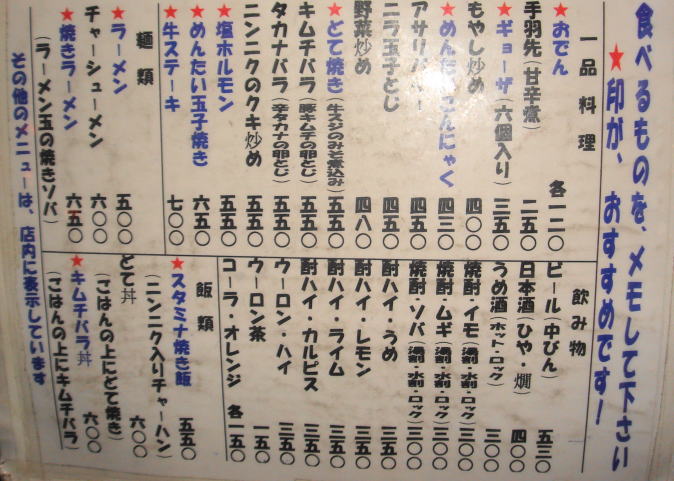 食べるものを、メモして下さい
★印が、おすすめです！
一品料理
★おでん 各一二〇
手羽先（甘辛煮） 二五〇
★ギョーザ（六個入り） 三五〇
もやし炒め 四〇〇
★めんたいこんにゃく 四三〇
アサリバター 四五〇
ニラ玉子とじ 四五〇
野菜炒め 四八〇
★とて焼き（牛スジのみそ煮込み） 五五〇
キムチバラ（豚キムチの卵とじ） 五五〇
タカナバラ（辛タカナの卵とじ） 五五〇
ニンニクのクキ炒め 五五〇
★塩ホルモン 五五〇
★めんたい玉子焼き 六五〇
★牛ステーキ 七〇〇
麺類
★ラーメン 五〇〇
チャーシューメン 六〇〇
★焼きラーメン 六五〇
（ラーメン玉の焼きソバ）
飲み物
ビール（中びん） 五三〇
日本酒（ひや・燗） 四〇〇
うめ酒（ホット・ロック） 三〇〇
焼酎・イモ（湯割・水割・ロック） 三〇〇
焼酎・ムギ（湯割・水割・ロック） 三〇〇
焼酎・ソバ（湯割・水割・ロック） 三〇〇
酎ハイ・うめ 三五〇
酎ハイ・レモン 三五〇
酎ハイ・ライム 三五〇
酎ハイ・カルピス 三五〇
ウーロン・ハイ 三五〇
ウーロン茶 一五〇
コーラ・オレンジ 各一五〇
飯類
★スタミナ焼き飯 五五〇
（ニンニク入りチャーハン）
とて丼 六〇〇
（ごはんの上にとて焼き）
★キムチバラ丼 六〇〇
（ごはんの上にキムチバラ）
その他のメニューは、店内に表示しています